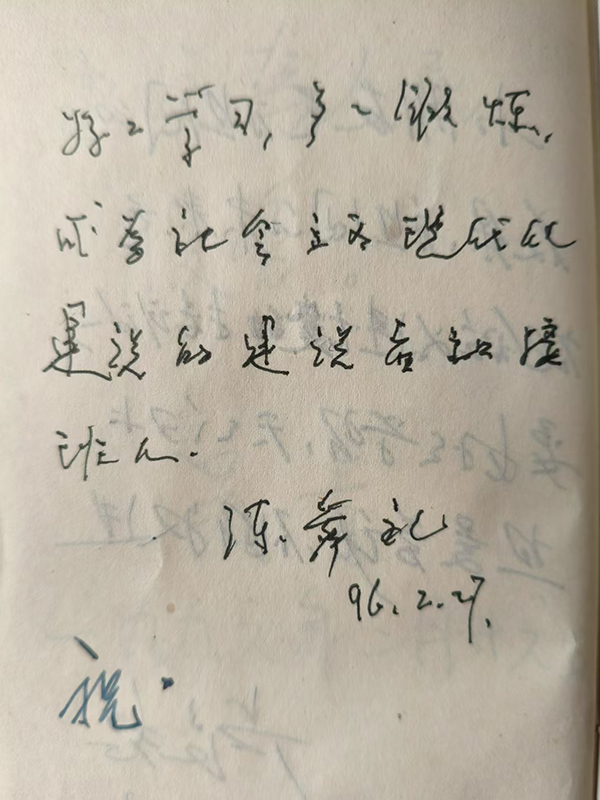 好々学习,多々锻炼,
成为社会主义现代化
建设的建设者和接
班人.
陈舜礼
96.2.27.
祝